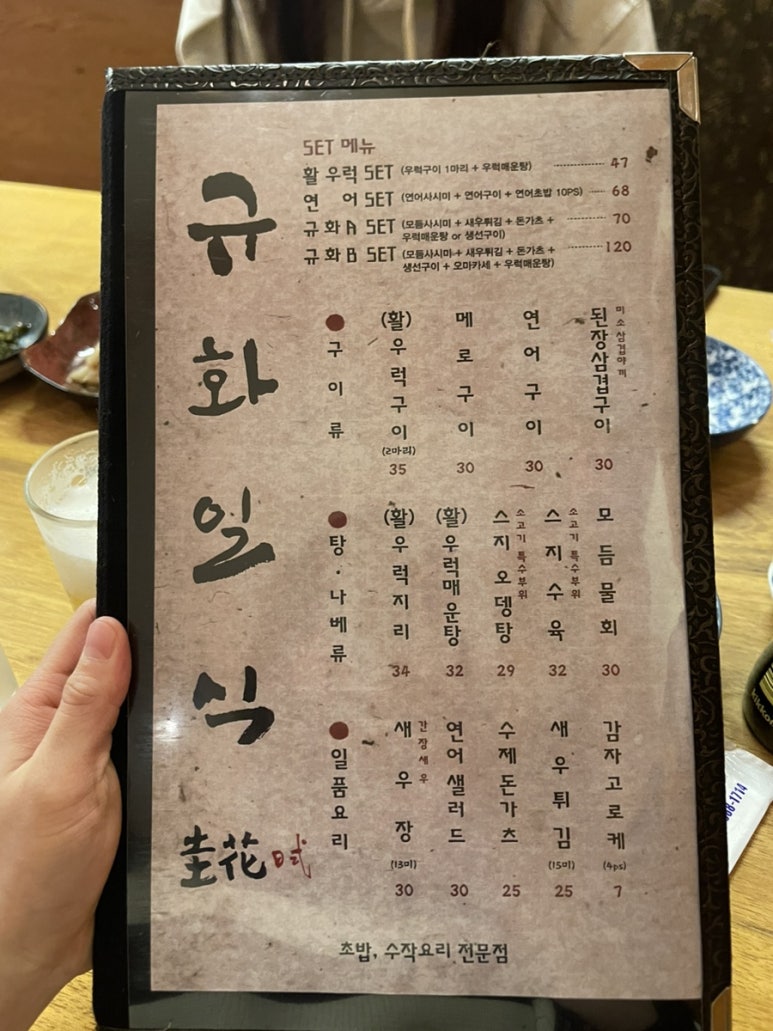 규화일식
圭花日式
SET 메뉴
활 우럭 SET (우럭구이 1마리 + 우럭매운탕) 47
연 어 SET (연어사시미 + 연어구이 + 연어초밥 10PS) 68
규화 A SET (모듬사시미 + 새우튀김 + 돈가츠 + 70
우럭매운탕 or 생선구이)
규화 B SET (모듬사시미 + 새우튀김 + 돈가츠 + 120
생선구이 + 오마카세 + 우럭매운탕)
구이류
(활)우럭구이 (2마리) 35
메로구이 30
연어구이 30
된장삼겹구이 미소삼겹야끼 30
탕·나베류
(활)우럭지리 34
(활)우럭매운탕 32
스지오뎅탕 소고기 특수부위 29
스지수육 소고기 특수부위 32
모듬물회 30
일품요리
새우장 간장새우 (13미) 30
연어샐러드 30
수제돈가츠 25
새우튀김 (15미) 25
감자고로케 (4ps) 7
초밥, 수작요리 전문점